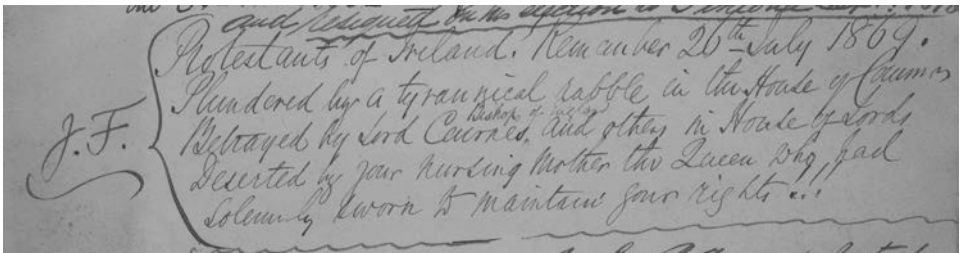 and resigned on his election to
Protestants of Ireland. Remember 26th July 1869.
Plundered by a tyrannical rabble in the House of Commons
Bishop of
Betrayed by Lord Cairnes, and others in House of Lords
J.F.
Deserted by your nursing mother the Queen who, had
Solemnly sworn to maintain your rights...!!